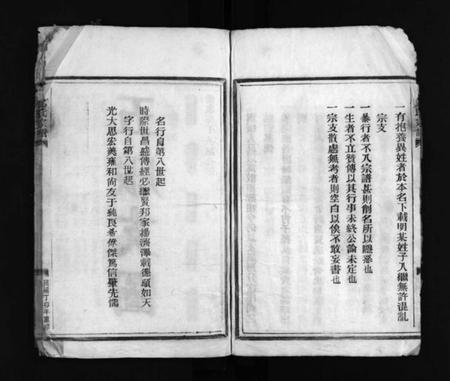 一有抱養異姓者於本名下載明某姓子入繼無許混亂
宗支
一暴行者不入宗譜甚則削名所以懲惡也
一生者不立贊傳以其行事未終公論未定也
一宗支散處無考者則空白以俟不敢妄書也
名行自第八世起
時際世昌盛傳經必繼賢邦家揚濟澤載德頌如天
字行自第八世起
光大思宏義雍和尚友于純良希俊傑篤信肇先儒